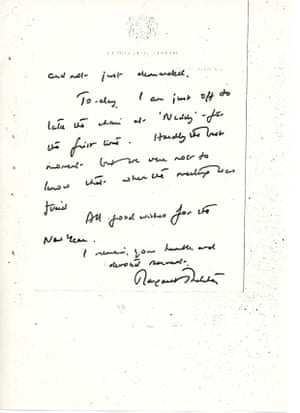 and not just demanded.
To-day, I am just off to
take the chair at 'Neddy' - for
the first time. Hardly the best
moment - but we were not to
know that when the meeting was
fixed.
All good wishes for the
New Year.
I remain, your humble and
devoted servant.
Margaret Thatcher